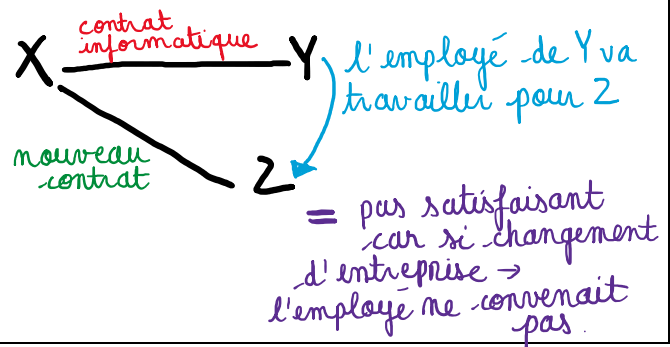 contrat
informatique
X
Y
l'employé de Y va
travailler pour Z
nouveau
contrat
Z
= pas satisfaisant
car si changement
d'entreprise →
l'employé ne convenait
pas.